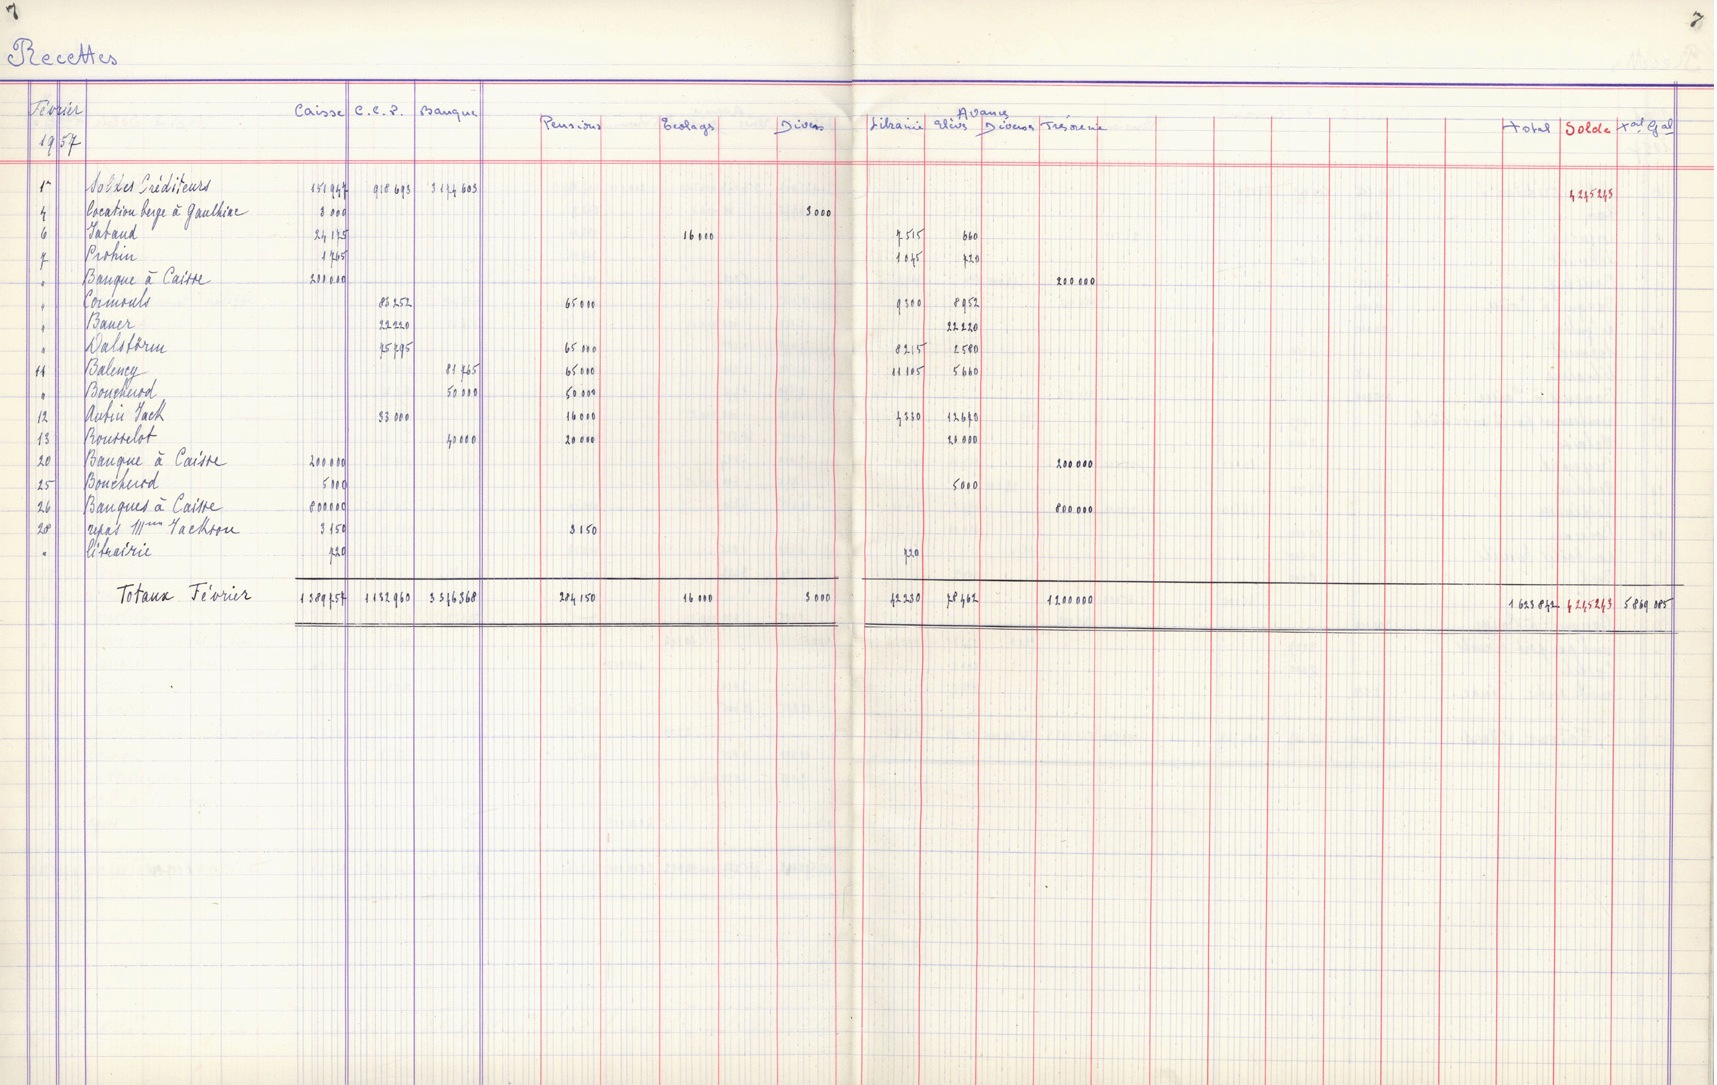 7 7
Recettes
Février 1957 Caisse C.C.P. Banque Pensions Ecolages Divers Librairie Avances Elèves Diverses Trésorerie Total Solde Tal Gal
1er Soldes Créditeurs 151 947 918 693 3 174 603 4 245 243
4 location berge à Gaulhiac 3 000 3 000
6 Jabaud 24 175 16 000 7 515 660
7 Prohin 1 765 1 045 720
" Banque à Caisse 200 000 200 000
" Cormouls 83 252 65 000 9 300 8 952
" Bauer 22 220 22 220
" Dalström 75 795 65 000 8 215 2 580
11 Balency 81 765 65 000 11 105 5 660
" Boucherod 50 000 50 000
12 Aubin Jack 33 000 16 000 4 330 12 670
13 Rousselot 40 000 20 000 20 000
20 Banque à Caisse 200 000 200 000
25 Boucherod 5 000 5 000
26 Banques à Caisse 800 000 800 000
28 repas Mme Jackson 3 150 3 150
" librairie 720 720
Totaux Février 1 389 757 1 132 960 3 346 368 284 150 16 000 3 000 42 230 78 462 1 200 000 1 623 842 4 245 243 5 869 085